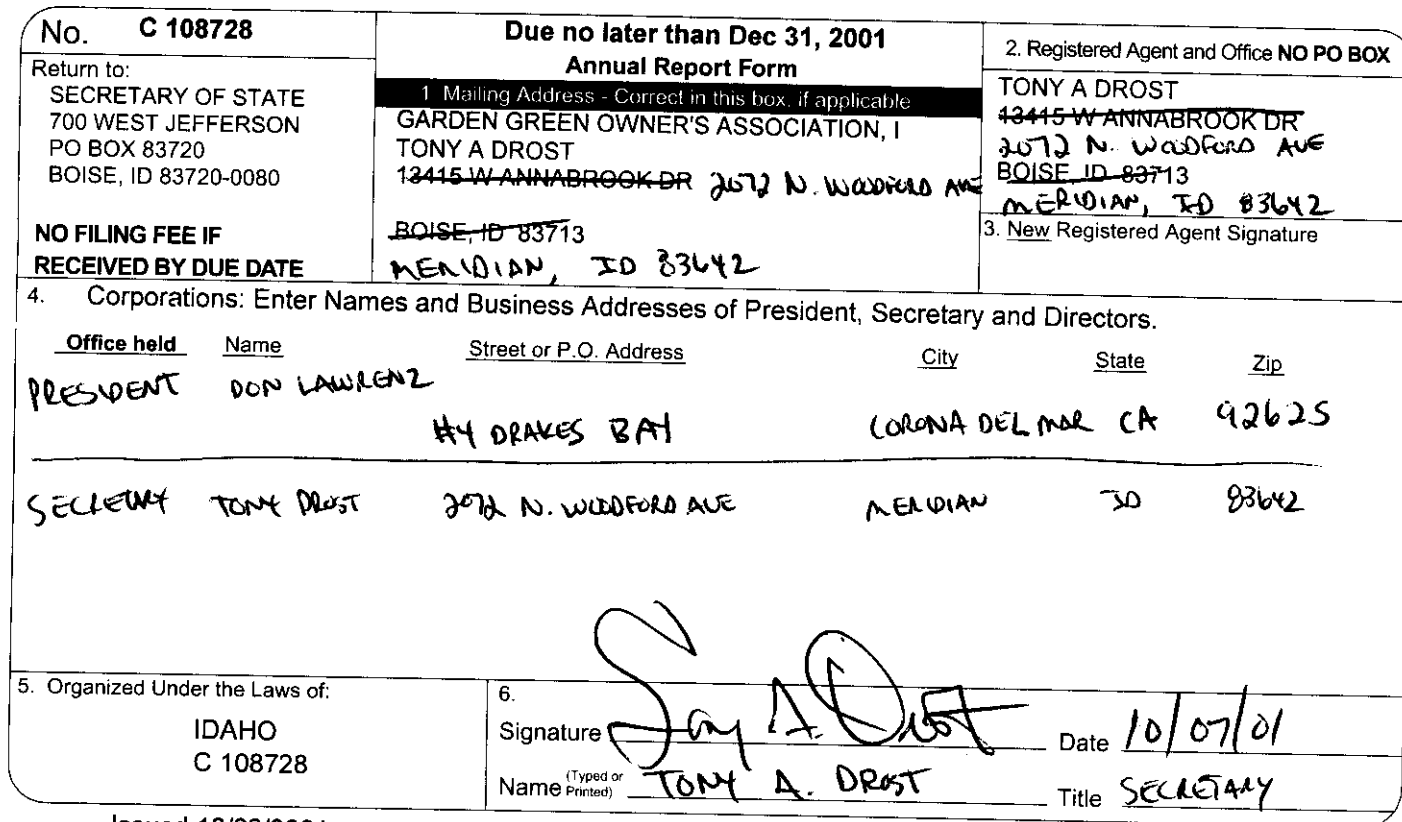 No. C 108728
Return to:
SECRETARY OF STATE
700 WEST JEFFERSON
PO BOX 83720
BOISE, ID 83720-0080
NO FILING FEE IF
RECEIVED BY DUE DATE
Due no later than Dec 31, 2001
Annual Report Form
1 Mailing Address - Correct in this box, if applicable
GARDEN GREEN OWNER'S ASSOCIATION, I
TONY A DROST
13415 W ANNABROOK DR 2072 N. WOODFORD AVE
BOISE, ID 83713
MERIDIAN, ID 83642
2. Registered Agent and Office NO PO BOX
TONY A DROST
13415 W ANNABROOK DR
2072 N. WOODFORD AVE
BOISE, ID 83713
MERIDIAN, ID 83642
3. New Registered Agent Signature
4. Corporations: Enter Names and Business Addresses of President, Secretary and Directors.
Office held Name Street or P.O. Address City State Zip
PRESIDENT DON LAWRENZ
#4 DRAKES BAY CORONA DEL MAR CA 92625
SECRETARY TONY DROST 2072 N. WOODFORD AVE MERIDIAN ID 83642
5. Organized Under the Laws of:
IDAHO
C 108728
6.
Signature Tony A. Drost Date 10/07/01
Name (Typed or Printed) TONY A. DROST Title SECRETARY